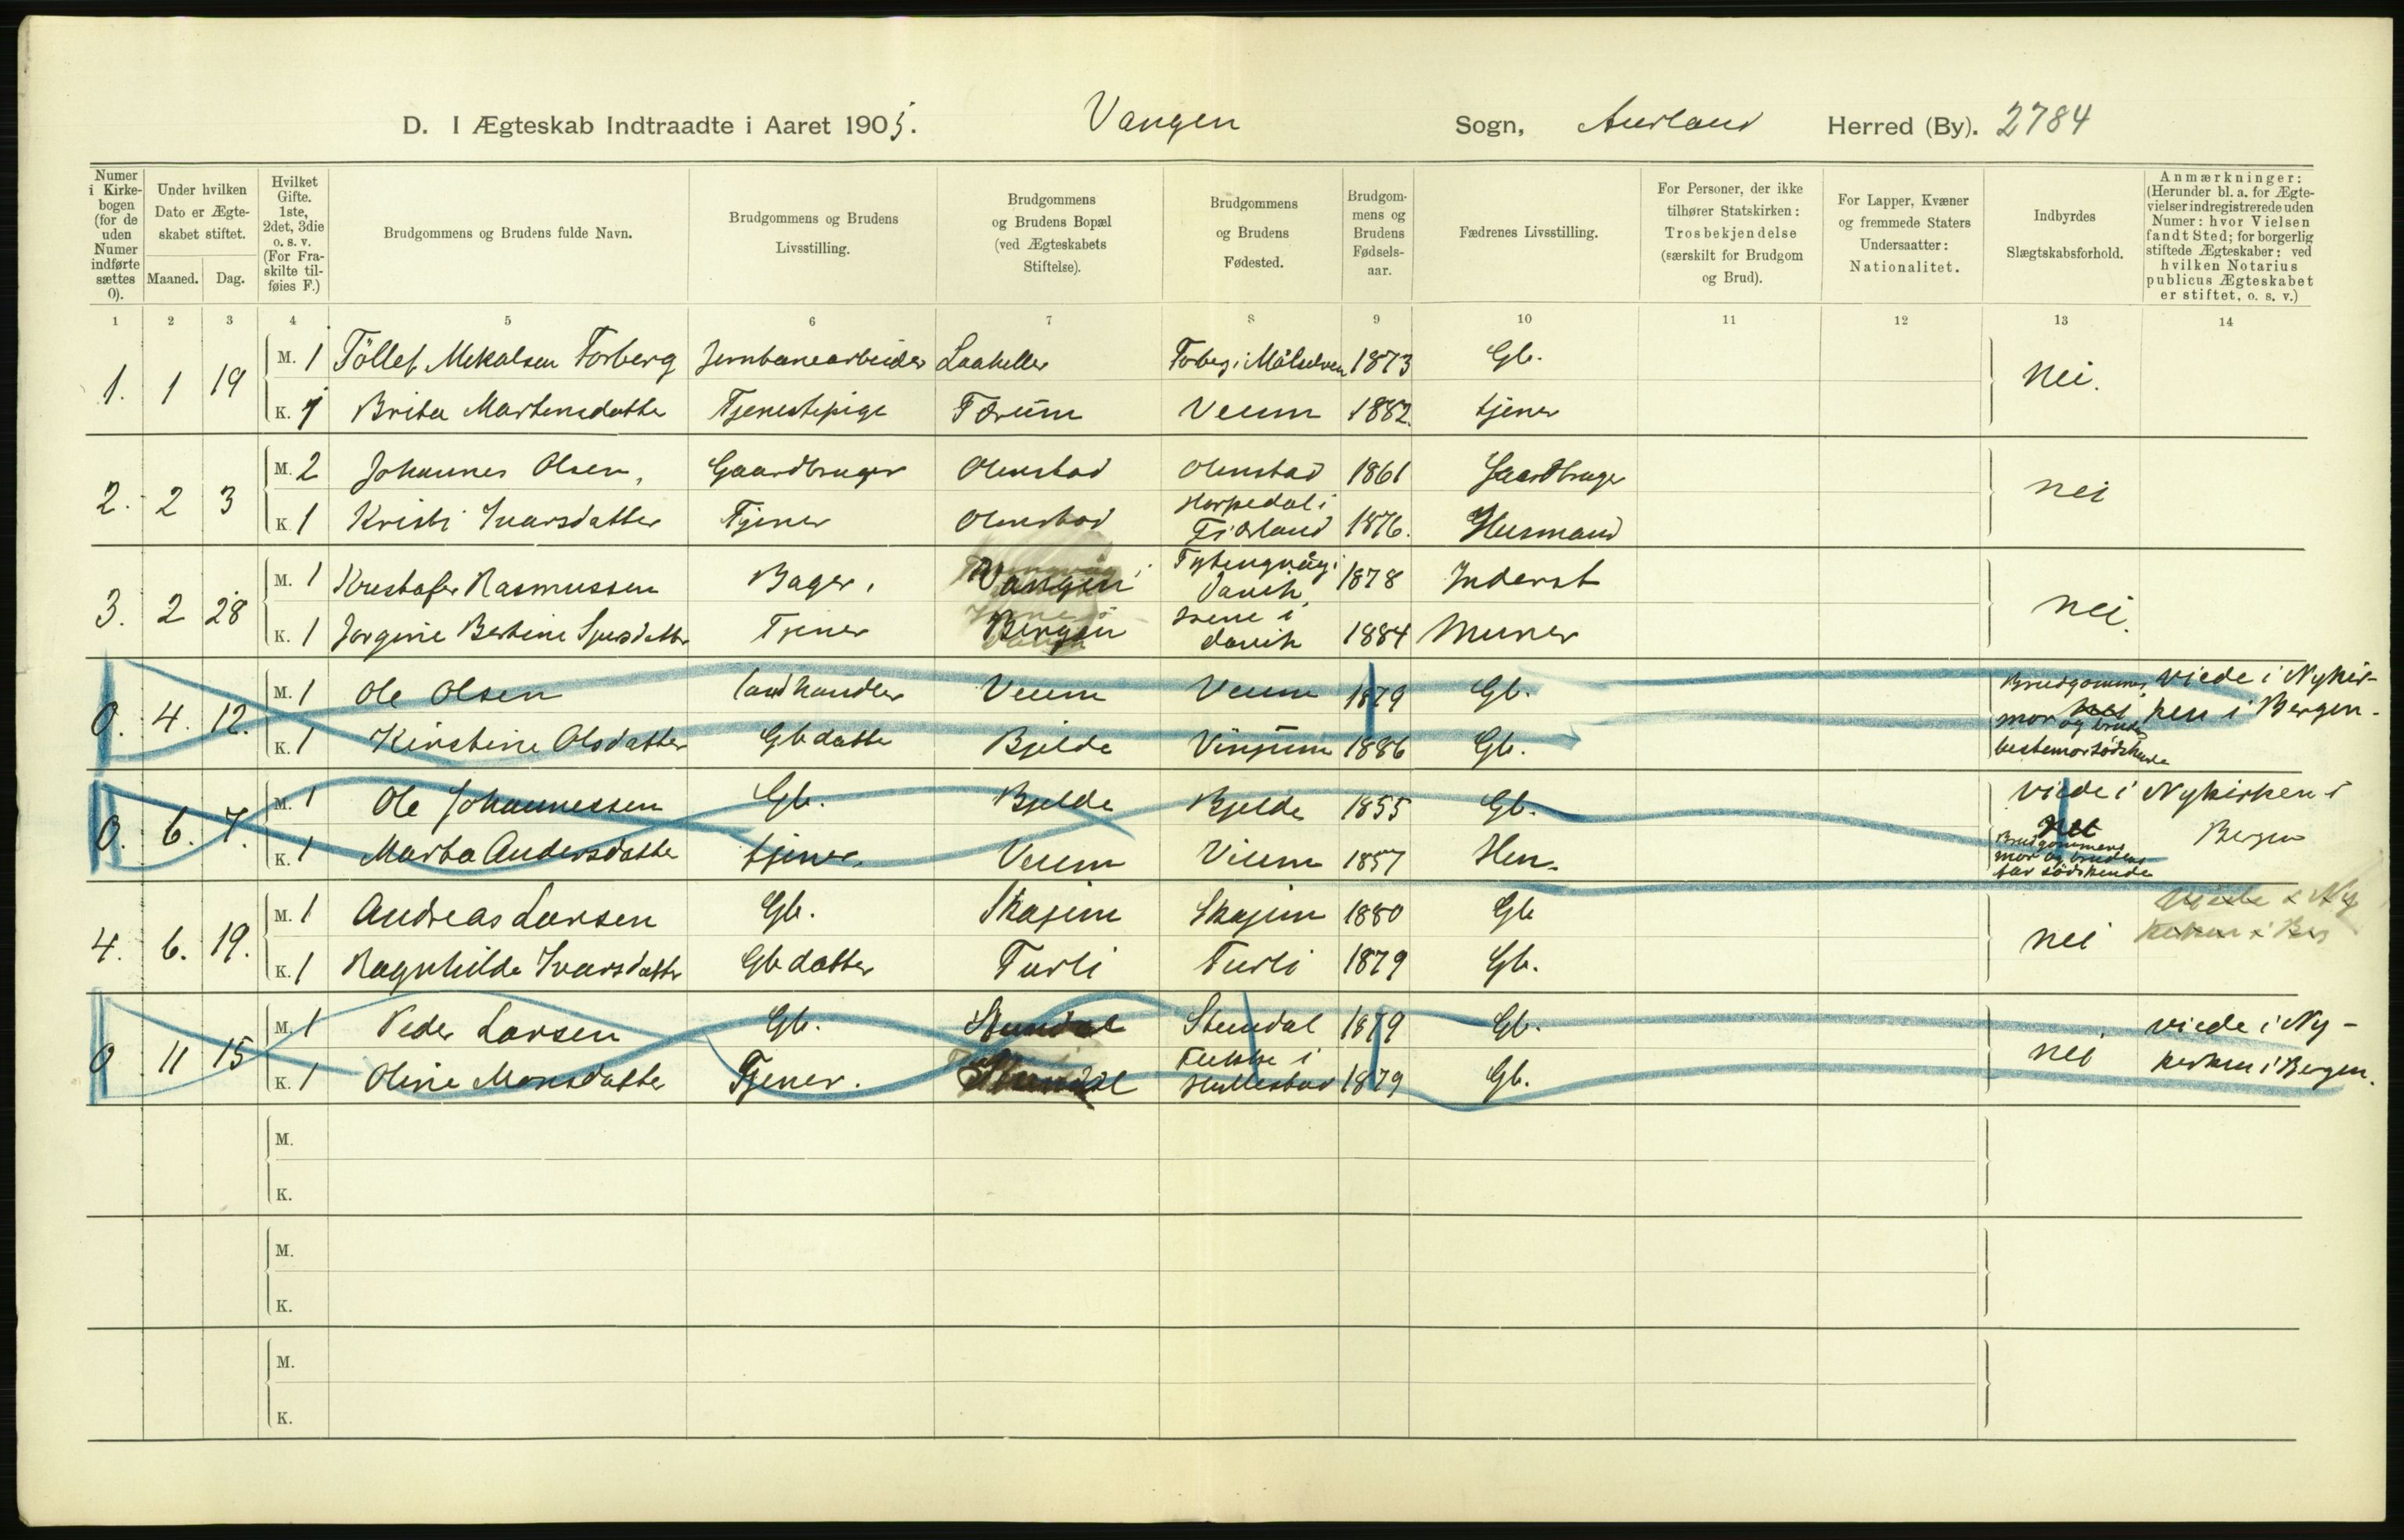 D. I Ægteskab Indtraadte i Aaret 1905. Vangen Sogn, Aurland Herred (By). 2784
Numer i Kirkebogen (for de uden Numer indførte sættes 0).
Under hvilken Dato er Ægteskabet stiftet.
Maaned. Dag.
Hvilket Gifte. 1ste, 2det, 3die o. s. v. (For Fraskilte tilføies F.)
Brudgommens og Brudens fulde Navn.
Brudgommens og Brudens Livsstilling.
Brudgommens og Brudens Bopæl (ved Ægteskabets Stiftelse).
Brudgommens og Brudens Fødested.
Brudgommens og Brudens Fødselsaar.
Fædrenes Livsstilling.
For Personer, der ikke tilhører Statskirken: Trosbekjendelse (særskilt for Brudgom og Brud).
For Lapper, Kvæner og fremmede Staters Undersaatter: Nationalitet.
Indbyrdes Slægtskabsforhold.
Anmærkninger: (Herunder bl. a. for Ægtevielser indregistrerede uden Numer: hvor Vielsen fandt Sted; for borgerlig stiftede Ægteskaber: ved hvilken Notarius publicus Ægteskabet er stiftet, o. s. v.)
1 2 3 4 5 6 7 8 9 10 11 12 13 14
1. 1 19 M. 1 Töllef Mekalsen Forberg Jernbanearbeider Laakeller Foberg i Målselven 1873 Gb. Nei.
K. 1 Brita Martensdatter Tjenestepige Færum Veum 1882. tjener
2. 2 3 M. 2 Johannes Olsen, Gaardbruger Olmstad Olmstad 1861 Gaardbruger nei
K. 1 Kristi Ivarsdatter Tjener Olmstad Horpedal i Fjærland 1876. Husmand
3. 2 28 M. 1 Krestofer Rasmussen Bager. Vangen Davik 1878 Inderst nei.
K. 1 Jorgine Bertine Tjener Bergen i davik 1884 Murer
0. 4. 12. M. 1 Ole Olsen landhandler Veum Veum 1879 Gb. Brudgommens mor og bruds bestemor södskende Viede i Nykirken i Bergen.
K. 1 Kirstine Olsdatter Gbdatter Bjelde Vinjum 1886 Gb.
0. 6. 7. M. 1 Ole Johannessen Gb. Bjelde Bjelde 1855 Gb. Viede i Nykirken i Bergen
K. 1 Marta Andersdatter tjener. Veum Veum 1857 Hm. Nei Brudgommens mor og brudens far södskende
4. 6. 19. M. 1 Andreas Larsen Gb. Skajem Skajem 1880 Gb nei Viede i Nykirken i Ber
K. 1 Ragnhilde Ivarsdatter Gbdatter Turli Turli 1879 Gb.
0 11 15 M. 1 Peder Larsen Gb. Stundal Stundal 1879 Gb. nei viede i Nykirken i Bergen.
K. 1 Oline Monsdatter Tjener. Stundal i Hyllestad 1879 Gb.
M.
K.
M.
K.
M.
K.